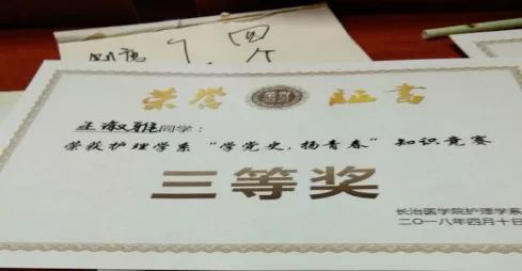 荣誉证书
王淑雅同学：
荣获护理学系“学党史，扬青春”知识竞赛
三等奖
长治医学院护理学系
二〇一八年四月十日